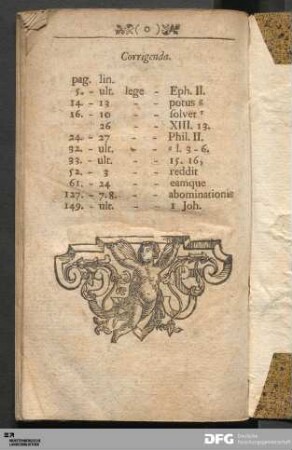 ( o )
Corrigenda.
pag. lin.
5. - ult. lege - Eph. II.
14. - 13 - - potus g
16. - 10 - - solver r
26 - - XIII. 13.
24. - 27 - - Phil. II.
32. - ult. - - s l. 3 - 6.
33. - ult. - - 15. 16.
52. - 3 - - reddit
61. - 24 - - eamque
127. - 7. 8. - - abominationis
149. - ult. - - I Joh.
DFG Deutsche
Forschungsgemeinschaft